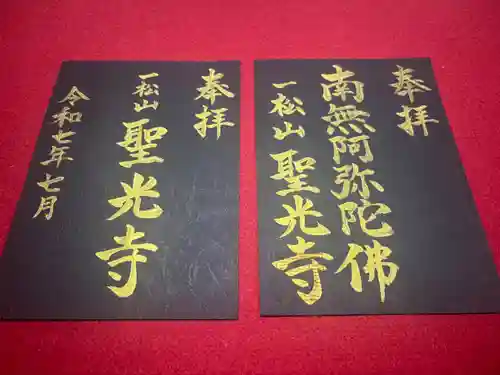 奉拝
一松山 聖光寺
令和七年七月
奉拝
南無阿弥陀佛
一松山 聖光寺